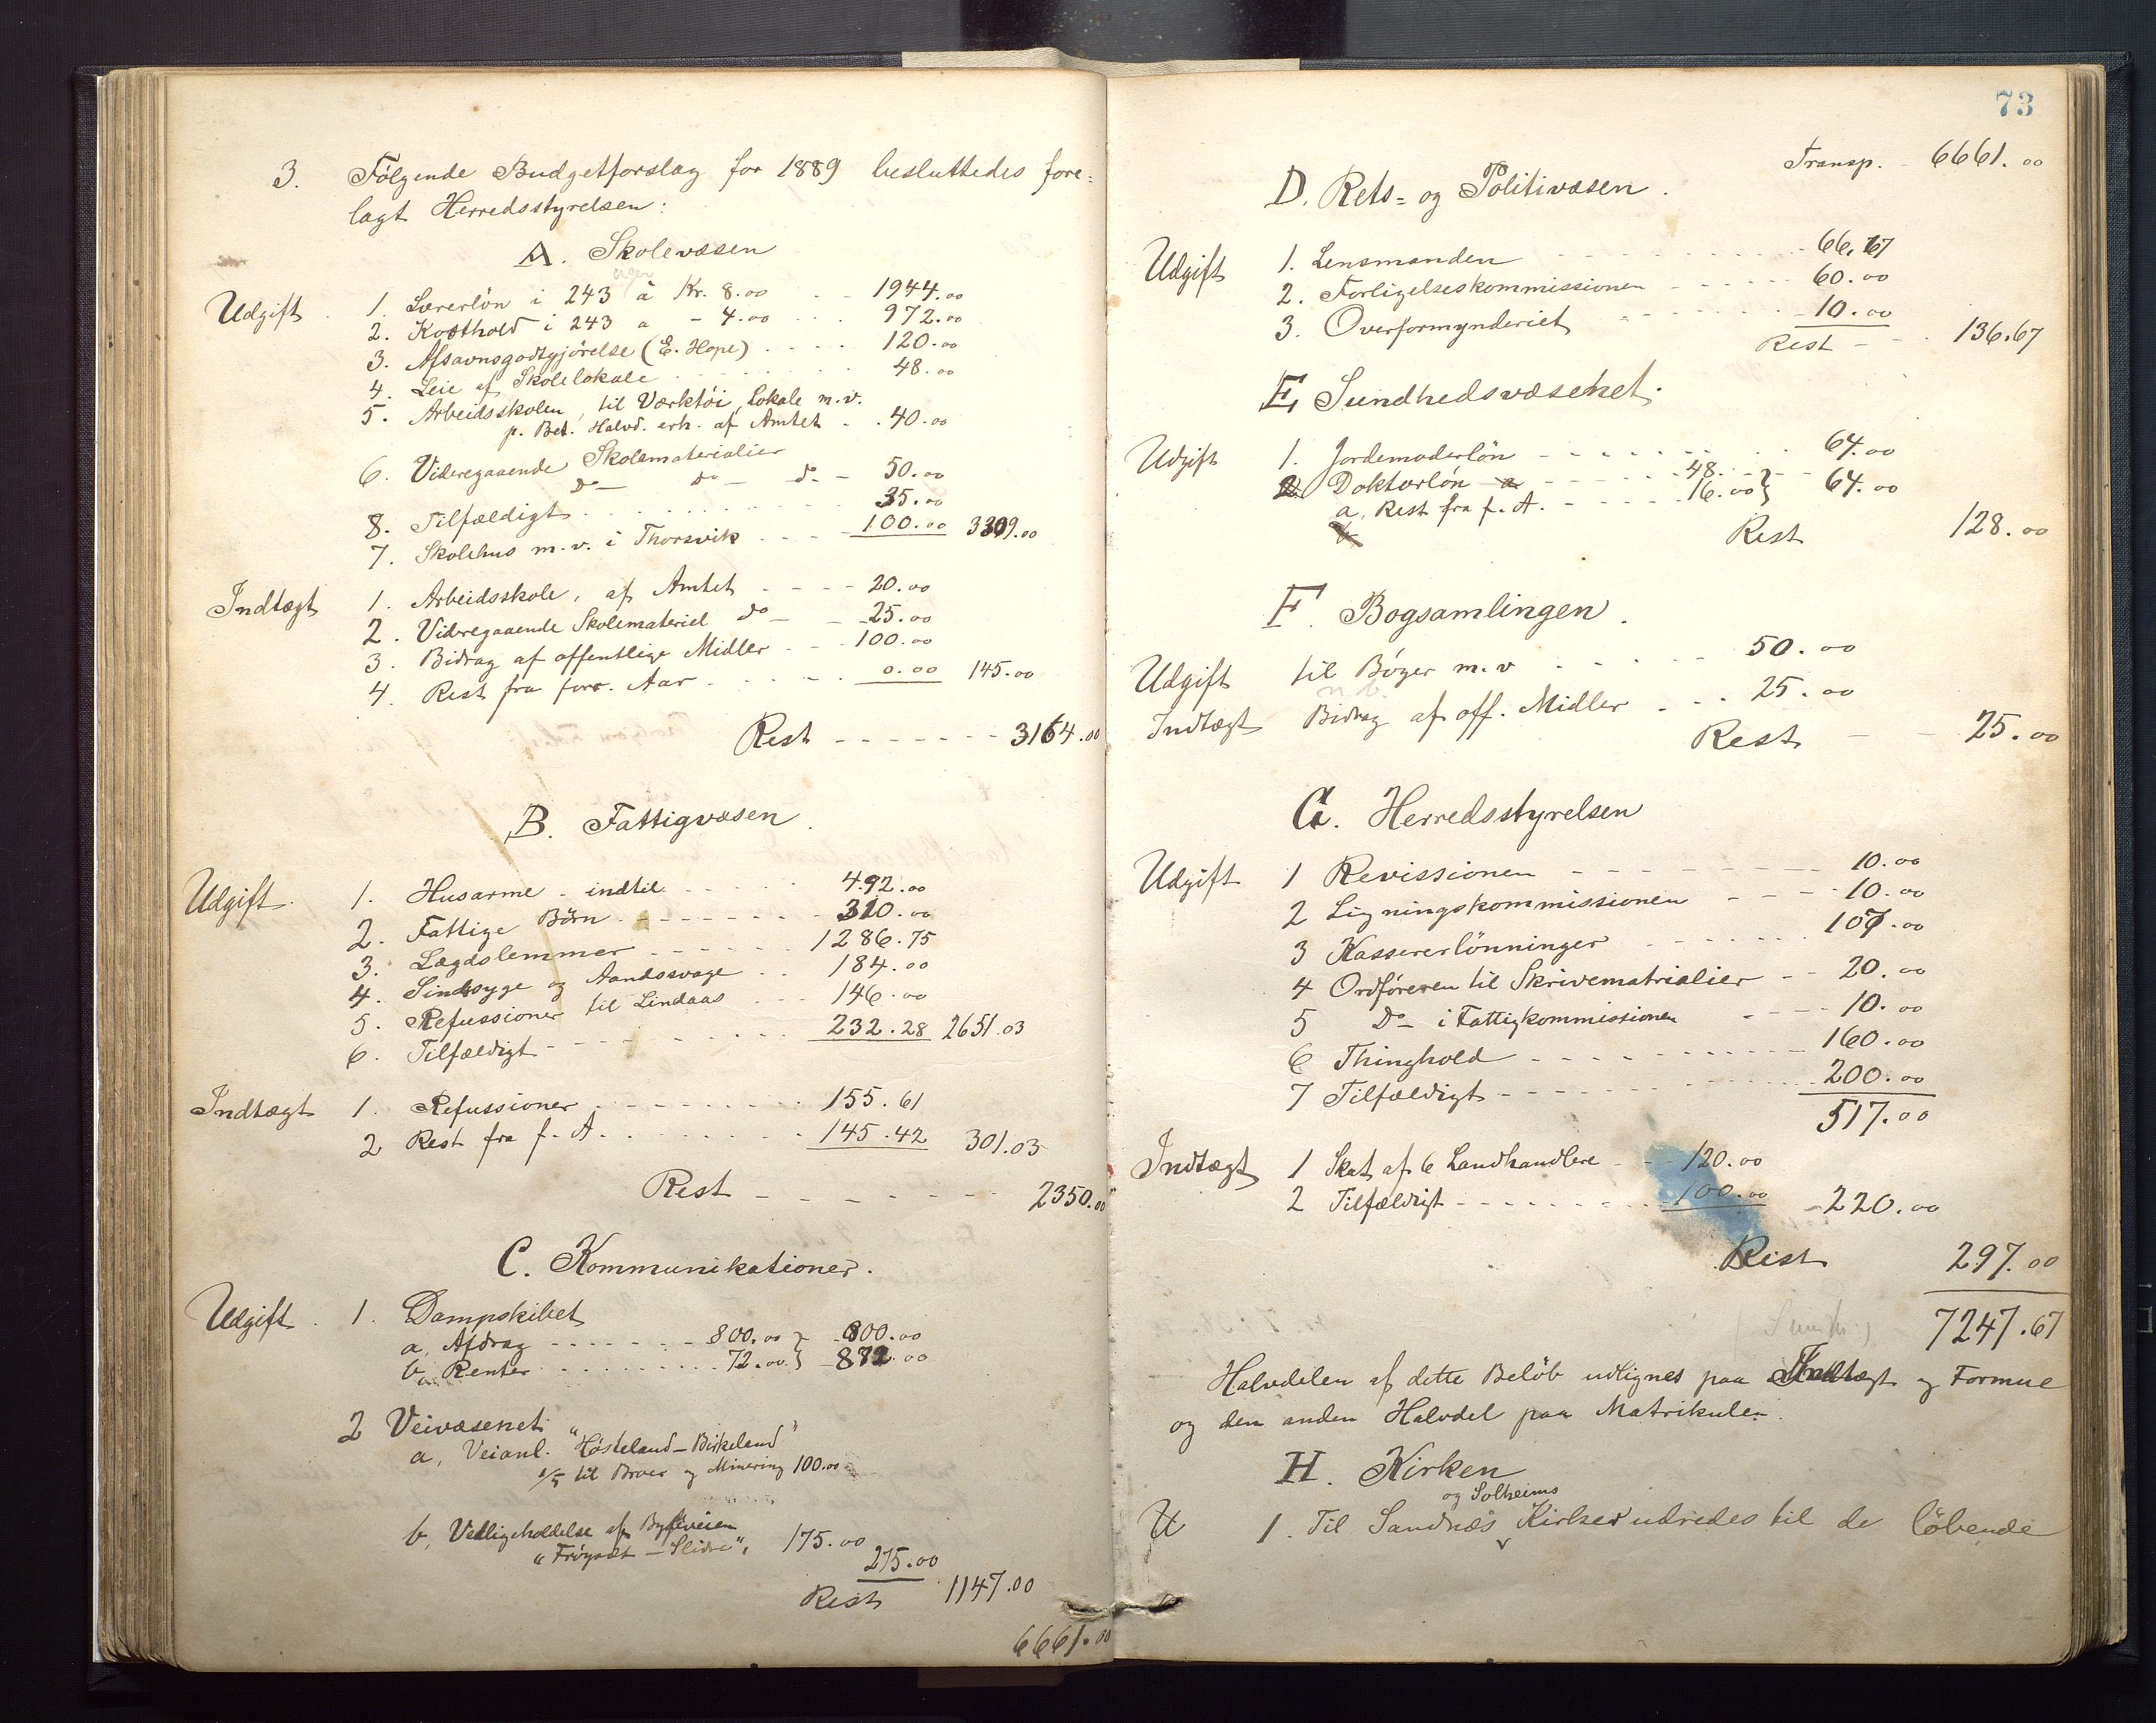 3. Følgende Budgetforslag for 1889 besluttedes fore=
lagt Herredsstyrelsen:
A. Skolevæsen
uger
Udgift. 1. Lærerløn i 243 à Kr. 8.00 1944.00
2. Kosthold i 243 a - 4.00 972.00
3. Afsavnsgodtgjørelse (E. Hope) 120.00
4. Leie af Skolelokale 48.00
5. Arbeidsskolen, til Værktøi, Lokale m.v.
p. Bet. Halvd. erh. af Amtet 40.00
6. Videregaaende Skolematerialier
do do do 50.00
8. Tilfældigt 35.00
7. Skolehus m.v. i Thorsvik 100.00 3309.00
Indtægt 1. Arbeidsskole, af Amtet 20.00
2. Videregaaende Skolemateriel do 25.00
3. Bidrag af offentlige Midler 100.00
4. Rest fra forr. Aar 0.00 145.00
Rest 3164.00
B. Fattigvæsen.
Udgift. 1. Husarme - indtil 492.00
2. Fattige Børn 310.00
3. Lægdslemmer 1286.75
4. Sindsyge og Aandssvage 184.00
5. Refussioner til Lindaas 146.00
6. Tilfældigt 232.28 2651.03
Indtægt 1. Refussioner 155.61
2 Rest fra f. A. 145.42 301.03
Rest 2350.00
C. Kommunikationer.
Udgift. 1. Dampskibet
a, Afdrag 800.00 } 800.00
b, Renter 72.00 } 872.00
2 Veivæsenet
a, Veianl. "Høsteland - Birkeland"
1/5 til Broer og Minering 100.00
b, Vedligeholdelse af Bygdeveien
"Frøyset - Slidre", 175.00
275.00
Rest 1147.00
6661.00
73
Transp. 6661.00
D. Rets= og Politivæsen.
Udgift 1. Lensmanden 66.67
2. Forligelseskommissionen 60.00
3. Overformynderiet 10.00
Rest 136.67
E Sundhedsvæsenet.
Udgift 1. Jordemoderløn 64.00
2 Doktorløn 48. }
a, Rest fra f. A. 16.00 } 64.00
Rest 128.00
F. Bogsamlingen.
Udgift til Bøger m.v 50.00
Indtægt Bidrag af off. Midler 25.00
Rest 25.00
G. Herredsstyrelsen
Udgift 1 Revissionen 10.00
2 Ligningskommissionen 10.00
3 Kassererlønninger 107.00
4 Ordføreren til Skrivematrialier 20.00
5 Do i Fattigkommissionen 10.00
6 Thinghold 160.00
7 Tilfældigt 200.00
517.00
Indtægt 1 Skat af 6 Landhandlere 120.00
2 Tilfældigt 100.00 220.00
Rest 297.00
7247.67
Halvdelen af dette Beløb udlignes paa Indtægt og Formue
og den anden Halvdel paa Matrikulen.
H. Kirken
og Solheims
U 1. Til Sandnæs Kirker udredes til de løbende